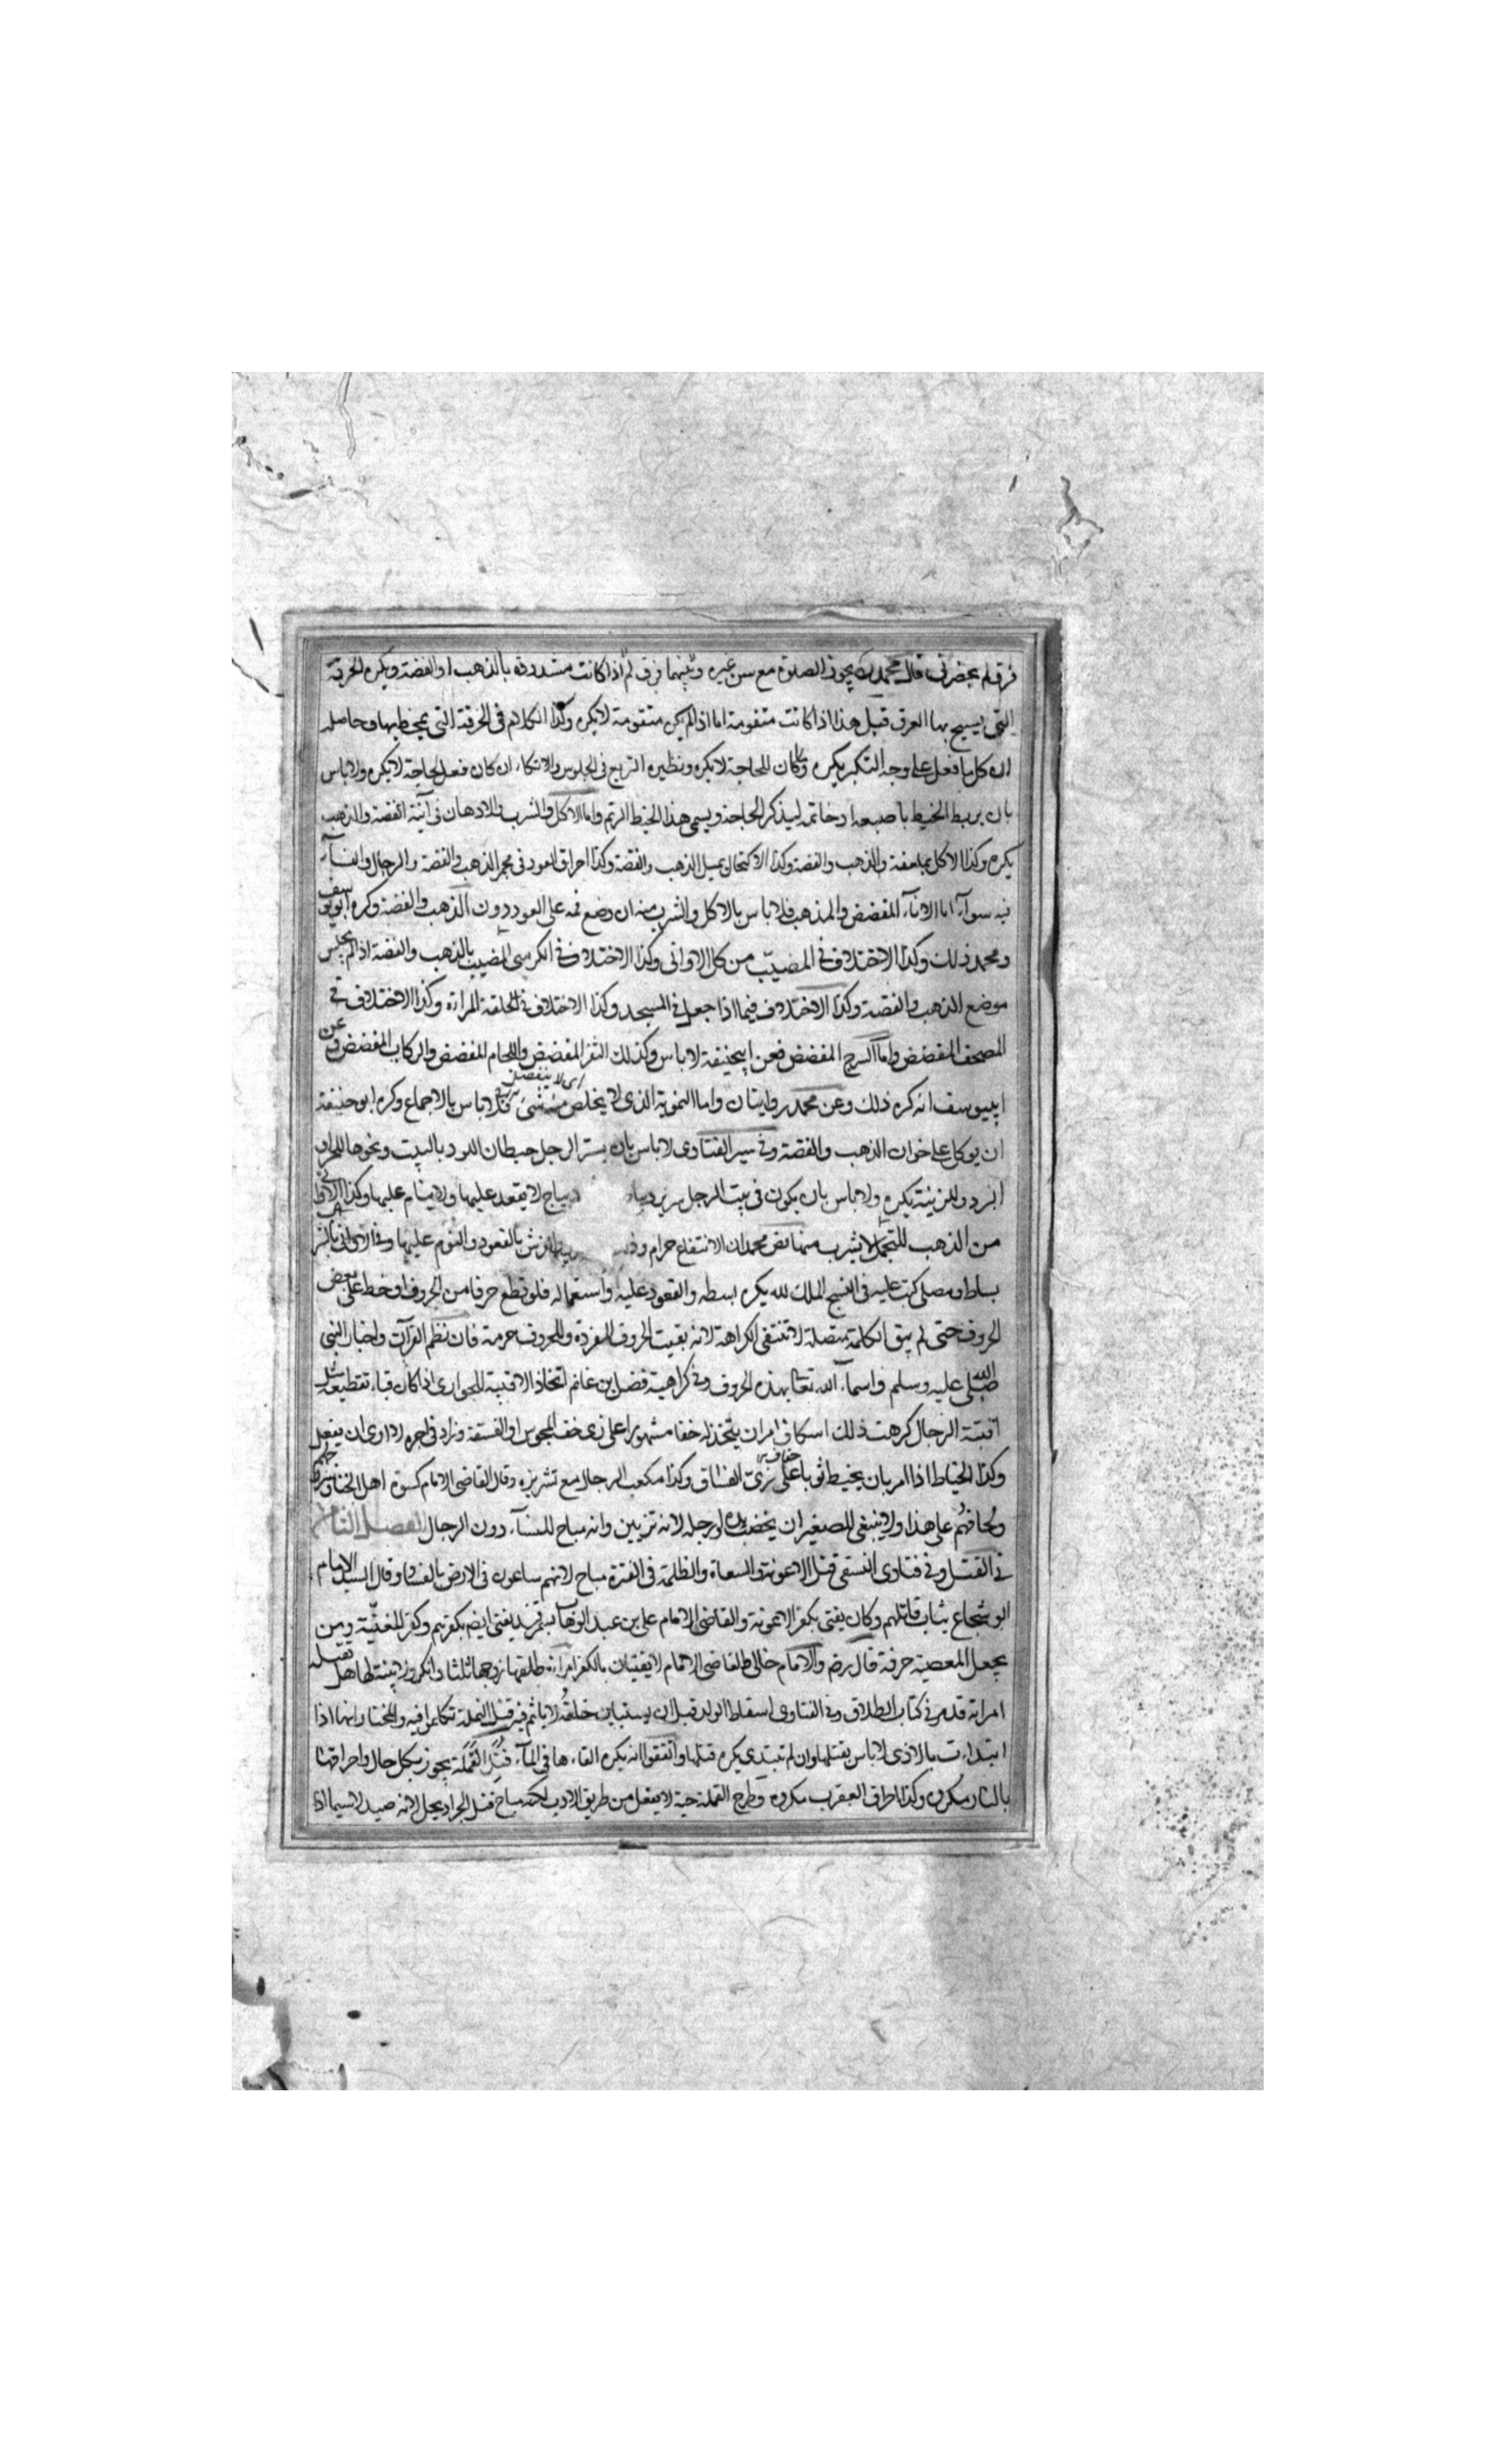 فرق لم يحضرنى قال محمدرح يجوز الصلوة مع سن غيره وبينهما فرق ثم اذا كانت مشدودة بالذهب او الفضة ويكره الخرقة
التى يمسح بها العرق قيل هذا اذا كانت متقومة اما اذا لم يكن متقومة لا يكره وكذا الكلام فى الخرقة التى يمخط بها وحاصله
ان كل ما فعل على وجه التكبر يكره وما كان للحاجة لا يكره ونظيره التربع فى الجلوس والاتكاء ان كان فعل لحاجة لا يكره ولا باس
بان يربط الخيط باصبعه او خاتمه ليذكر الحاجة ويسمى هذا الخيط الرتم واما الاكل والشرب والادهان فى آنية الفضة والذهب
يكره وكذا الاكل بملعقة والذهب والفضة وكذا الاكتحال بميل الذهب والفضة وكذا احراق العود فى مجمر الذهب والفضة والرجال والنسآء
فيه سوآء اما الانآء المفضض والمذهب فلا باس بالاكل والشرب منه ان وضع فمه على العود دون الذهب والفضة وكره ابويوسف
ومحمد ذلك وكذا الاختلاف فى المضبب من كل الاوانى وكذا الاختلاف فى الكرسى المضبب بالذهب والفضة اذا لم يجلس
موضع الذهب والفضة وكذا الاختلاف فيما اذا جعل فى المسجد وكذا الاختلاف فى الحلقة للمراة وكذا الاختلاف فى
المصحف المفضض واما السرج المفضض فعن ابيحنيفة لا باس وكذلك الثفر المفضض واللجام المفضض والركاب المفضض وعن
ابييوسف انه كره ذلك وعن محمد روايتان واما التمويه الذى لا يخلص منه شئ فلا باس بالاجماع وكره ابو حنيفة
اى لا ينفصل
ان يوكل على خوان الذهب والفضة وفى سير الفتاوى لا باس بان يستر الرجل حيطان اللبود بالبيت ونحوها للحر او
البرد وللزينة يكره ولا باس بان يكون فى بيت الرجل سرير ديباج لا يقعد عليها ولا ينام عليها وكذا الاوانى
من الذهب للتجمل لا يشرب منها نص محمد ان الانتفاع حرام بالقعود والنوم عليها وفى الاوانى بالشرب
بساط او مصلى كتب عليه فى النسج الملك لله يكره بسطه والقعود عليه واستعماله فلو قطع حرفا من الحروف او خط على بعض
الحروف حتى لم يبق الكلمة متصلة لا تنتفى الكراهة لانه بقيت الحروف المفردة وللحروف حرمة فان نظم القرآن واخبار النبى
صلى الله عليه وسلم واسمآء الله تعالى بهذه الحروف وفى كراهية فضل بن غانم اتخاذ الاقبية للجوارى اذا كان قباء تقطيعه مثل
اقبية الرجال كرهت ذلك اسكاف امر ان يتخذ له خفا مشهورا على زى خف المجوس او الفسقة وزاد فى اجره لا ارى ان يفعل
وكذا الخياط اذا امر بان يخيط ثوبا على زى الفساق وكذا مكعب الرجال مع تشريزه وقال القاضى الامام كسوة اهل الخناق
ولحافهم على هذا ولا ينبغى للصغير ان يخضب يده او رجله لانه تزيين وانه مباح للنسآء دون الرجال الفصل الثامن
فى القتل وفى فتاوى النسفى قتل الاعونة والسعاة والظلمة فى الفترة مباح لانهم ساعون فى الارض بالفساد وقال السيد الامام
ابو شجاع يثاب قاتلهم وكان يفتى بكفر الاعونة والقاضى الامام على بن عبد الوهاب بسمرقند يفتى ايضا بكفرهم وكفر المغنية ومن
يجعل المعصية حرفة قال رض والامام خالى والقاضى الامام لا يفتيان بالكفر امراة طلقها زوجها ثلثا وانكر ولا بينة لها هل تقتله
امراته قد مر فى كتاب الطلاق وفى الفتاوى اسقاط الولد قبل ان يستبين خلقه لا ياثم فيه قتل النملة تكلموا فيه والمختار انها اذا
ابتداءت بالاذى لا باس بقتلها وان لم تبتدى يكره قتلها واتفقوا انه يكره القاءها فى المآء قتل القملة يجوز بكل حال واحراقها
بالنار مكروه وكذا احراق العقرب مكروه وطرح القملة حية لا يفعل من طريق الادب لكنه مباح قتل الجراد يحل لانه صيد لا سيما اذا